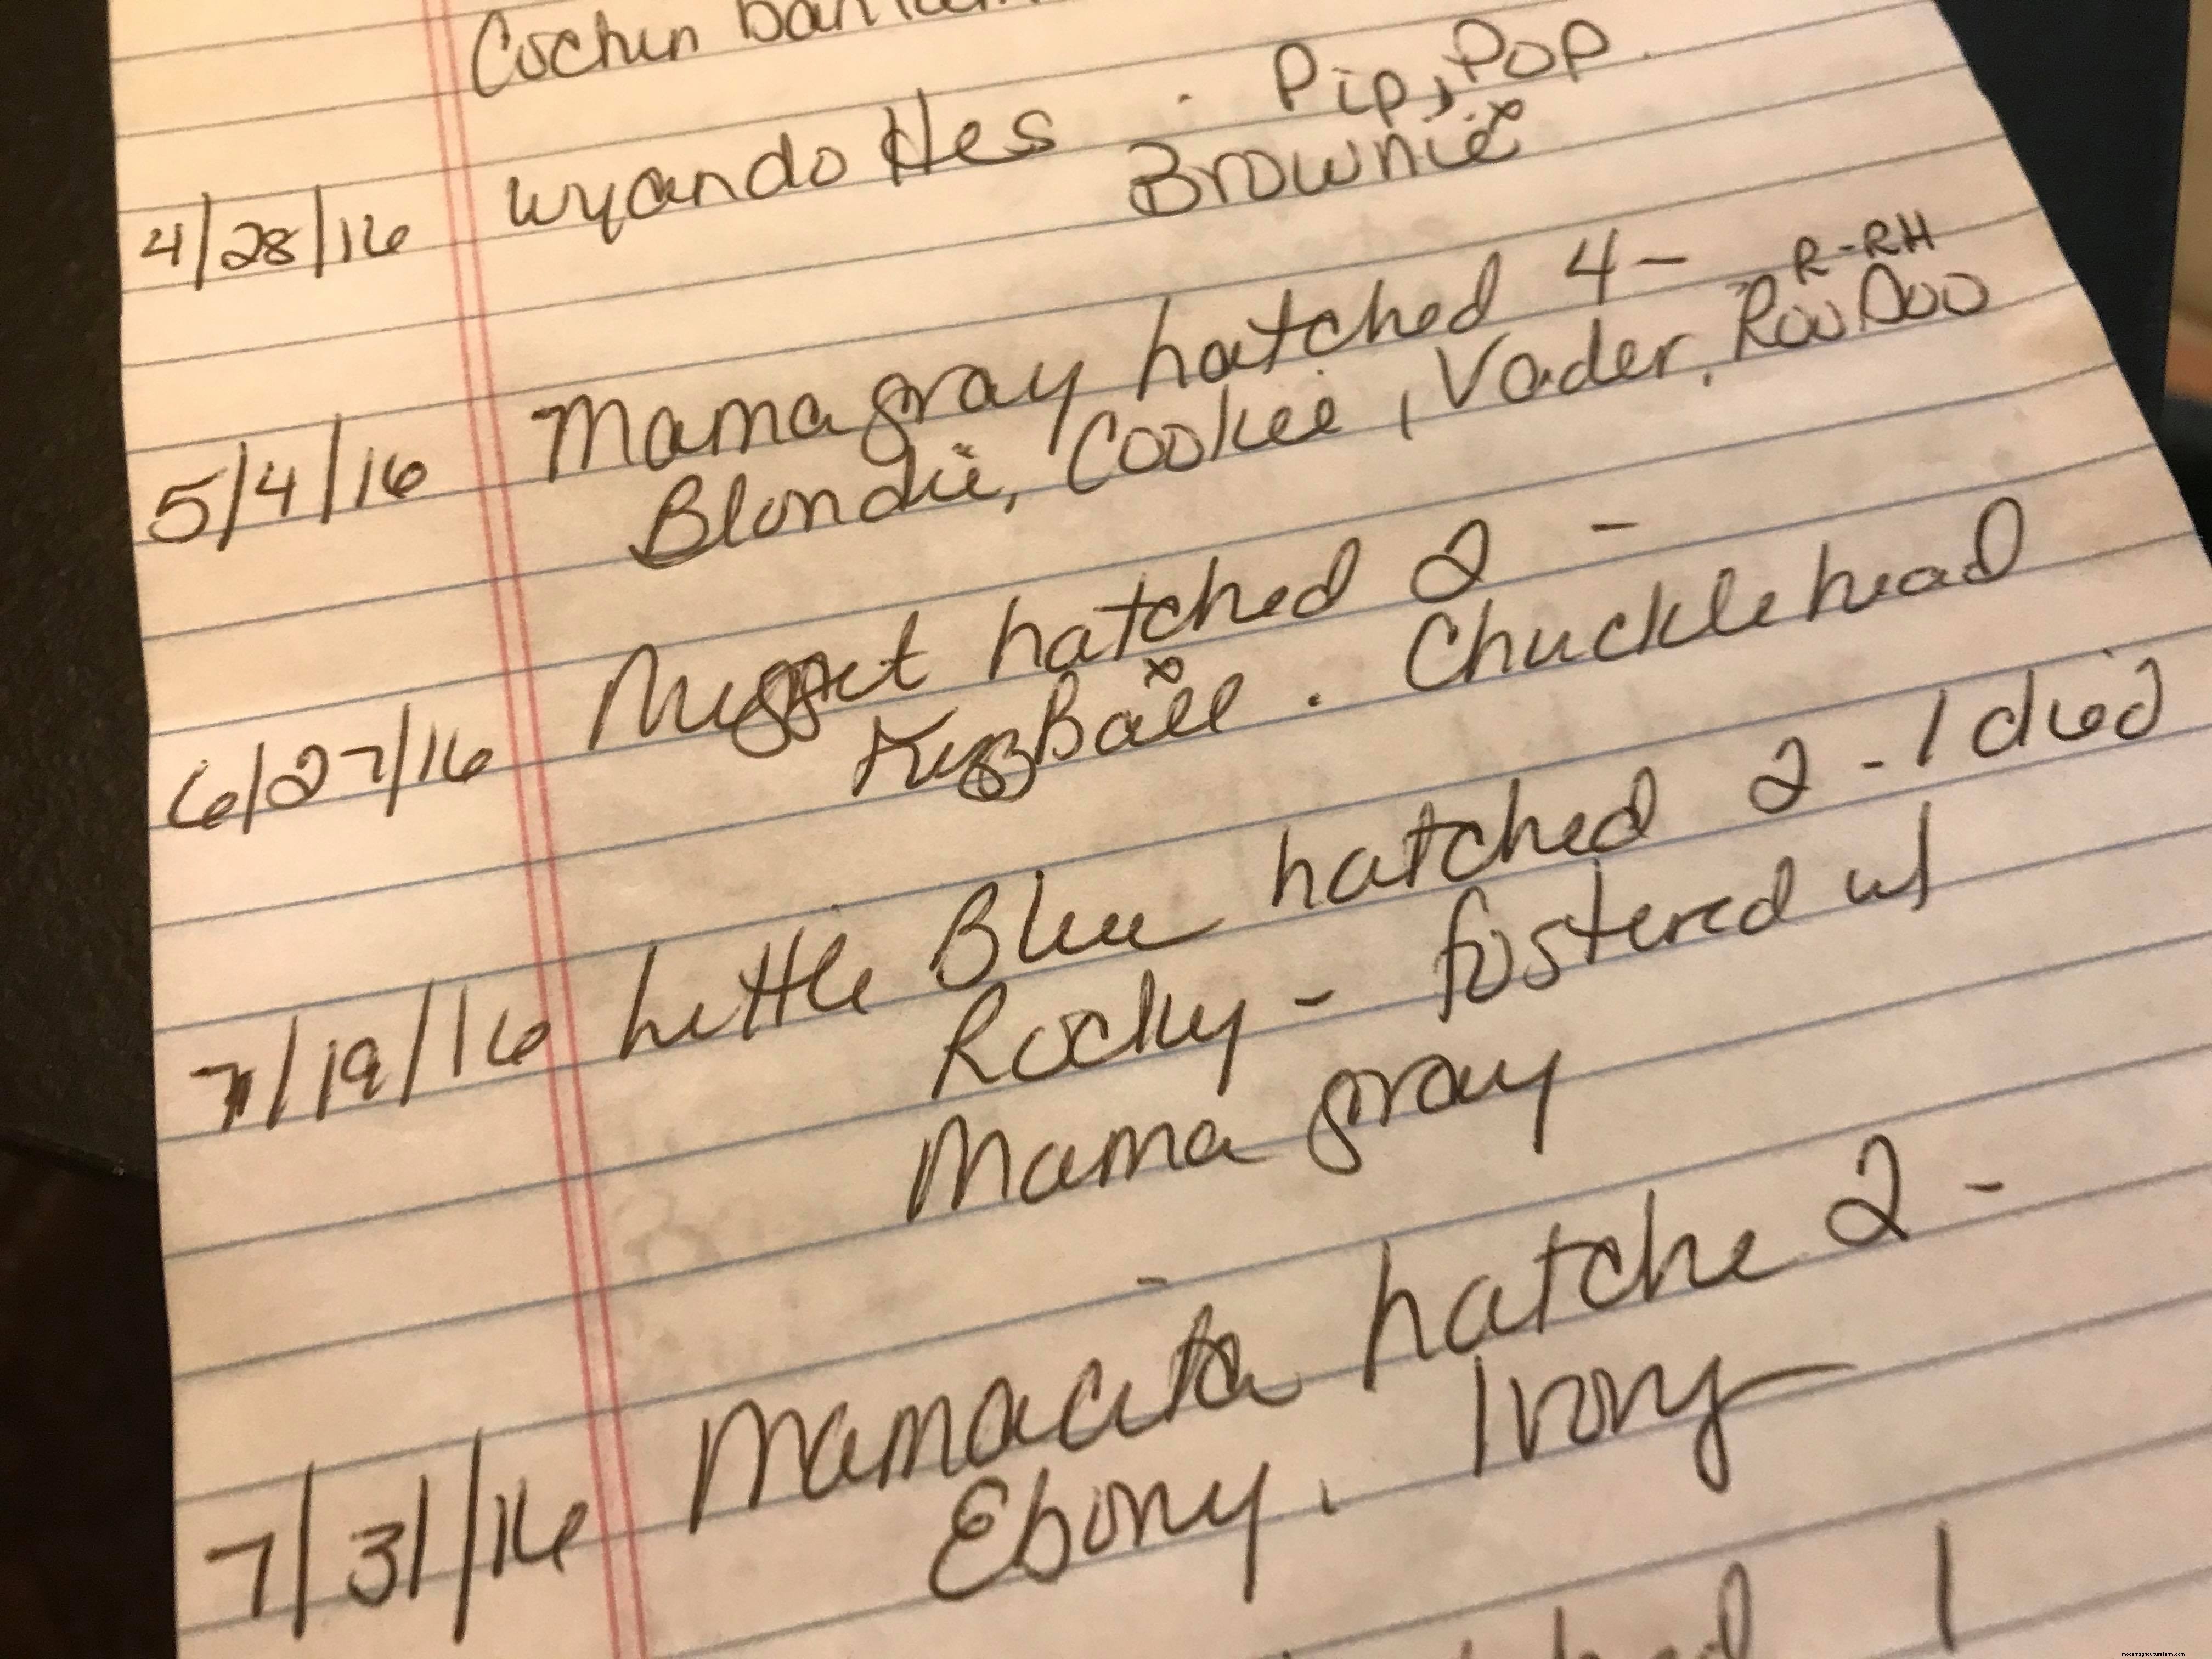 Cochin
4/28/16 Wyandottes . Pip, Pop.
Brownie
5/4/16 Mama gray hatched 4 -
R-RH
Blondie, Cookie, Vader, RooDoo
6/27/16 Nugget hatched 2 -
FuzzBall . Chucklehead
7/19/16 Little Blue hatched 2 - 1 died
Rocky - fostered w/
Mama gray
7/31/16 Mamacita hatche 2 -
Ebony, Ivory
1
modernagriculturefarm.com